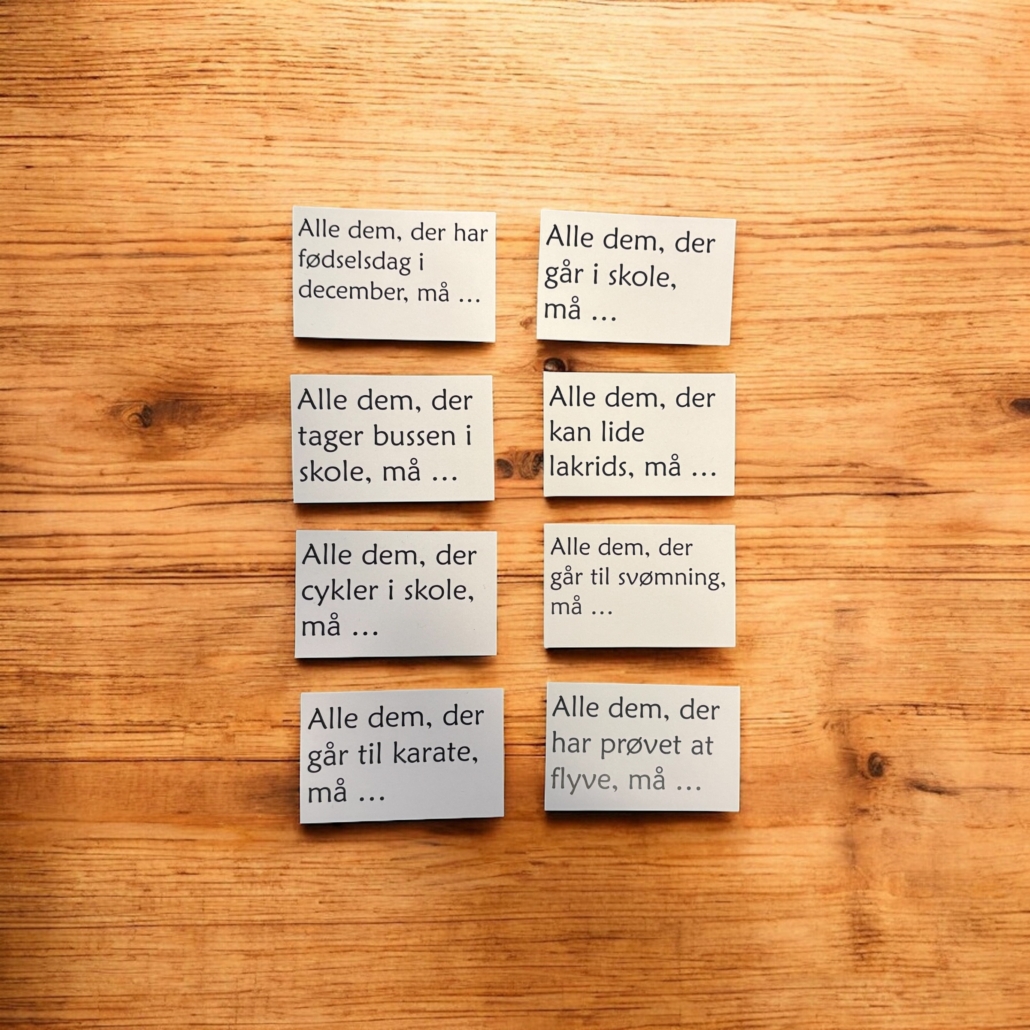 Alle dem, der har
fødselsdag i
december, må ...
Alle dem, der
går i skole,
må ...
Alle dem, der
tager bussen i
skole, må ...
Alle dem, der
kan lide
lakrids, må ...
Alle dem, der
cykler i skole,
må ...
Alle dem, der
går til svømning,
må ...
Alle dem, der
går til karate,
må ...
Alle dem, der
har prøvet at
flyve, må ...